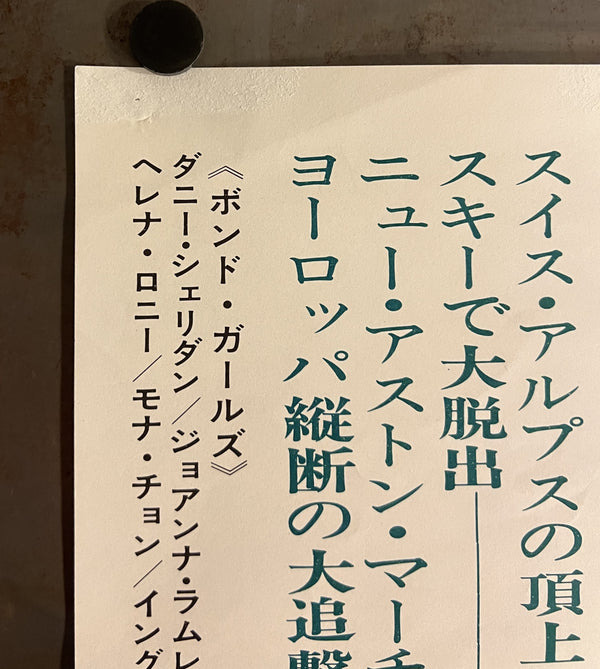 スイス・アルプスの頂上
スキーで大脱出──
ニュー・アストン・マーチ
ヨーロッパ縦断の大追撃
《ボンド・ガールズ》
ダニー・シェリダン／ジョアンナ・ラムレ
ヘレナ・ロニー／モナ・チョン／イング